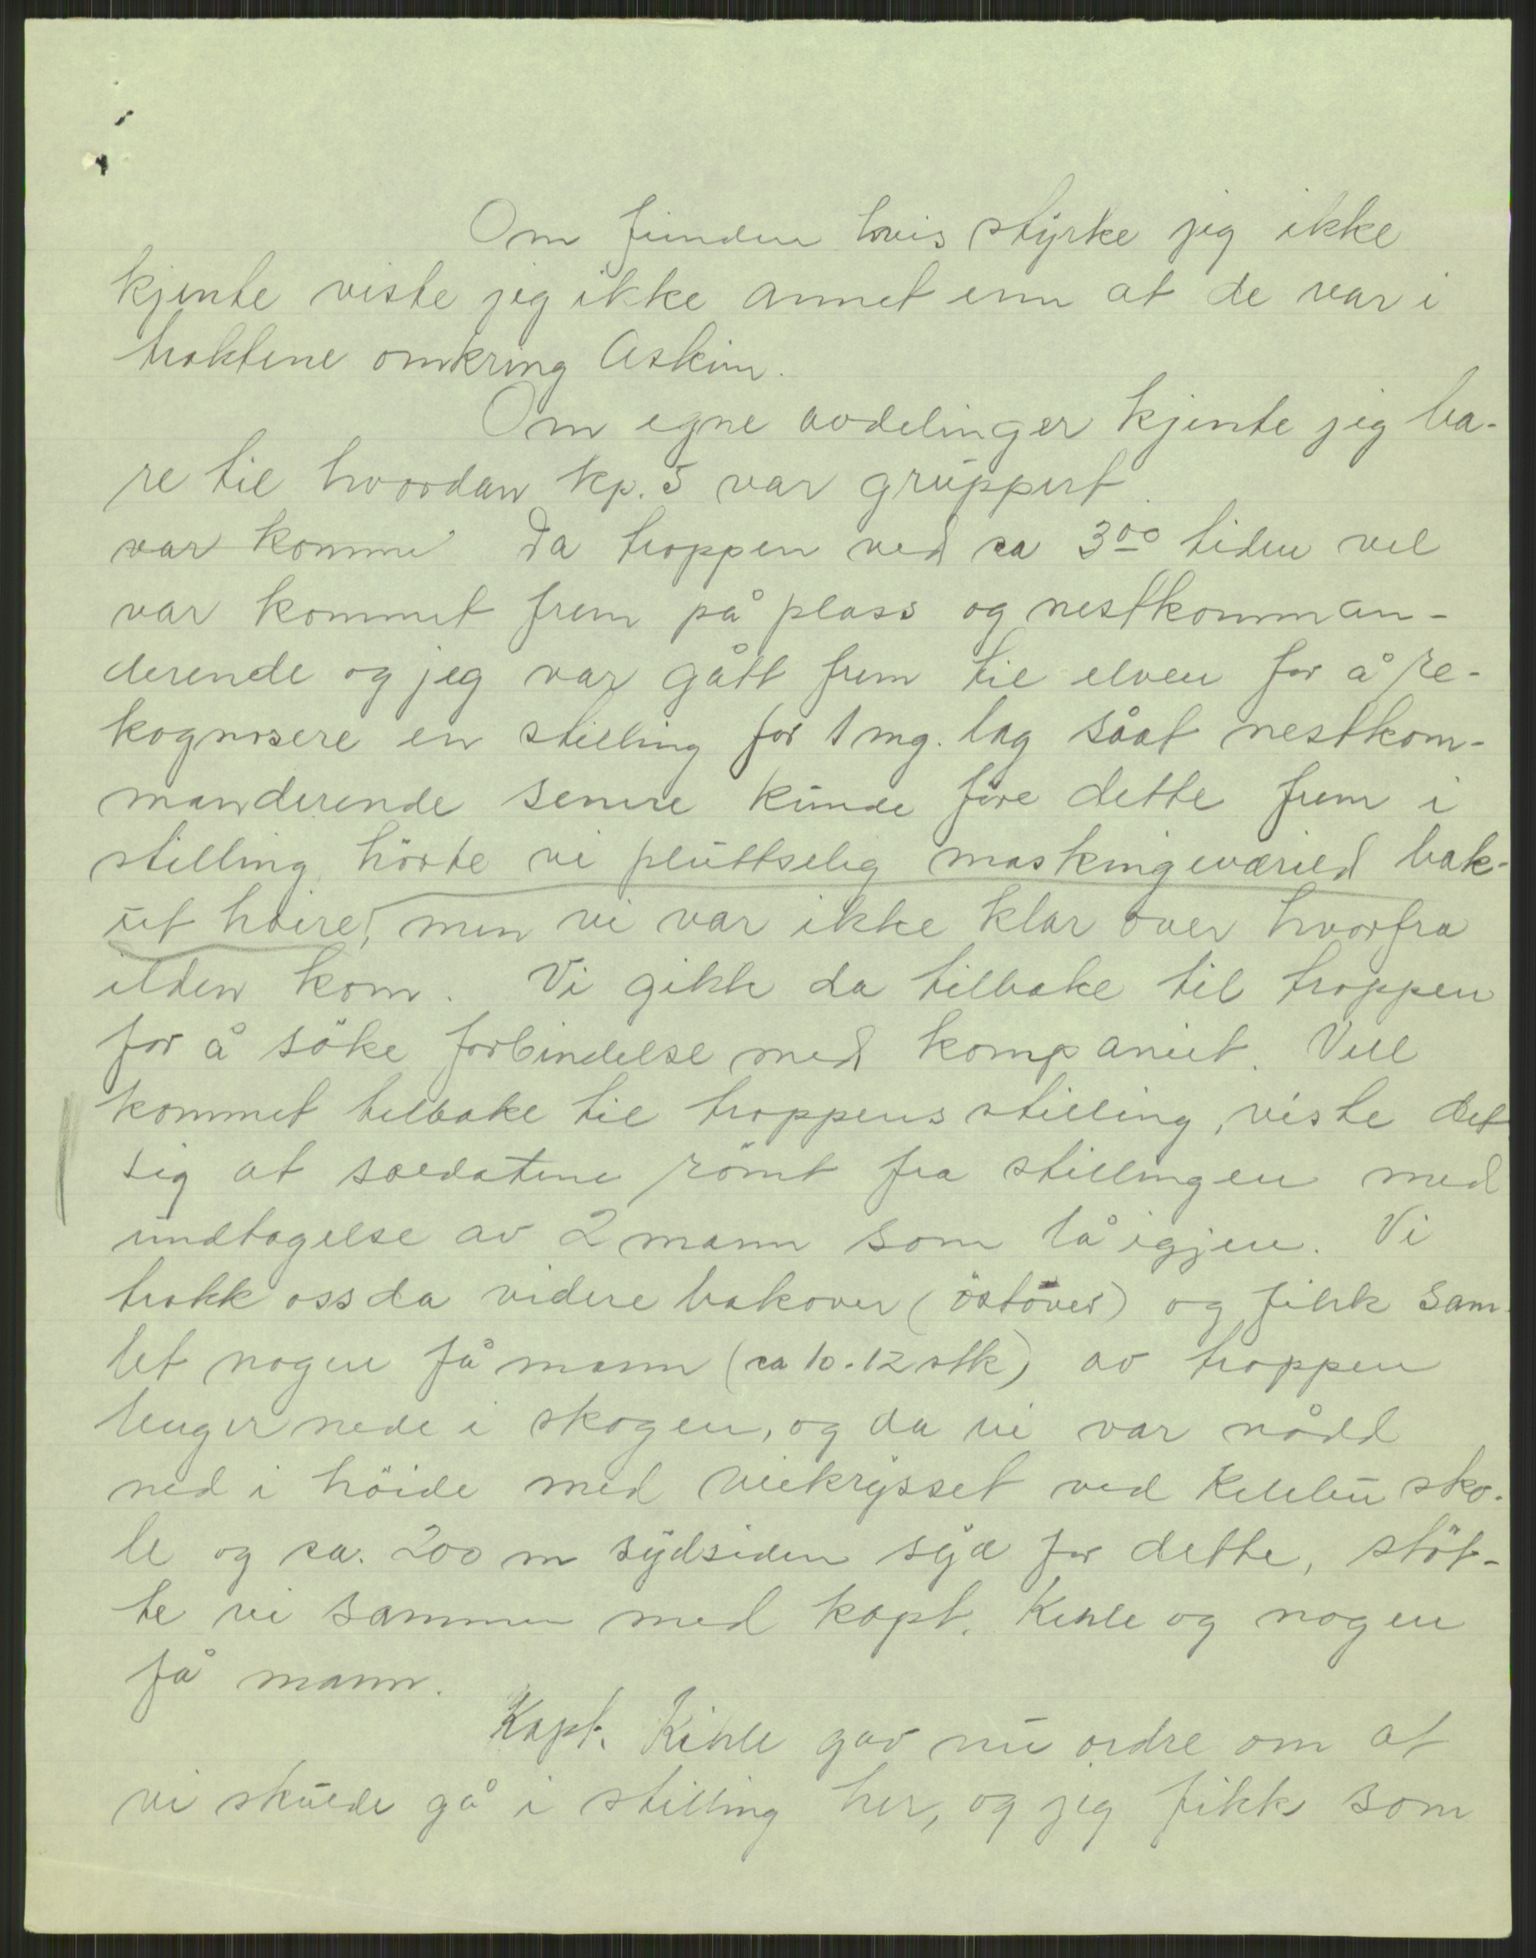 Om fienden hvis styrke jeg ikke
kjente viste jeg ikke annet enn at de var i
traktene omkring Askim.
Om egne avdelinger kjente jeg ba-
re til hvordan kp. 5 var gruppert.
var komme Da troppen ved ca 3⁰⁰ tiden vel
var kommet frem på plass og nestkomman-
derende og jeg var gått frem til elven for å re-
kognosere en stilling for 1 mg. lag såat nestkom-
manderende senere kunde føre dette frem i
stilling, hörte vi pluttselig maskingeværild bak-
ut höire, men vi var ikke klar over hvorfra
ilden kom. Vi gikk da tilbake til troppen
for å söke forbindelse med kompaniet. Vell
kommet tilbake til troppens stilling, viste det
sig at soldatene römt fra stillingen med
undtagelse av 2 mann som lå igjen. Vi
trakk oss da videre bakover (östover) og fikk sam-
let nogen få mann (ca 10-12 stk) av troppen
lenger nede i skogen, og da vi var nådd
ned i höide med veikrysset ved sko-
le og ca. 200 m sydsiden syd for dette, stöt-
te vi sammen med kapt. Kihle og nogen
få mann.
Kapt. Kihle gav nu ordre om at
vi skulde gå i stilling her, og jeg fikk som